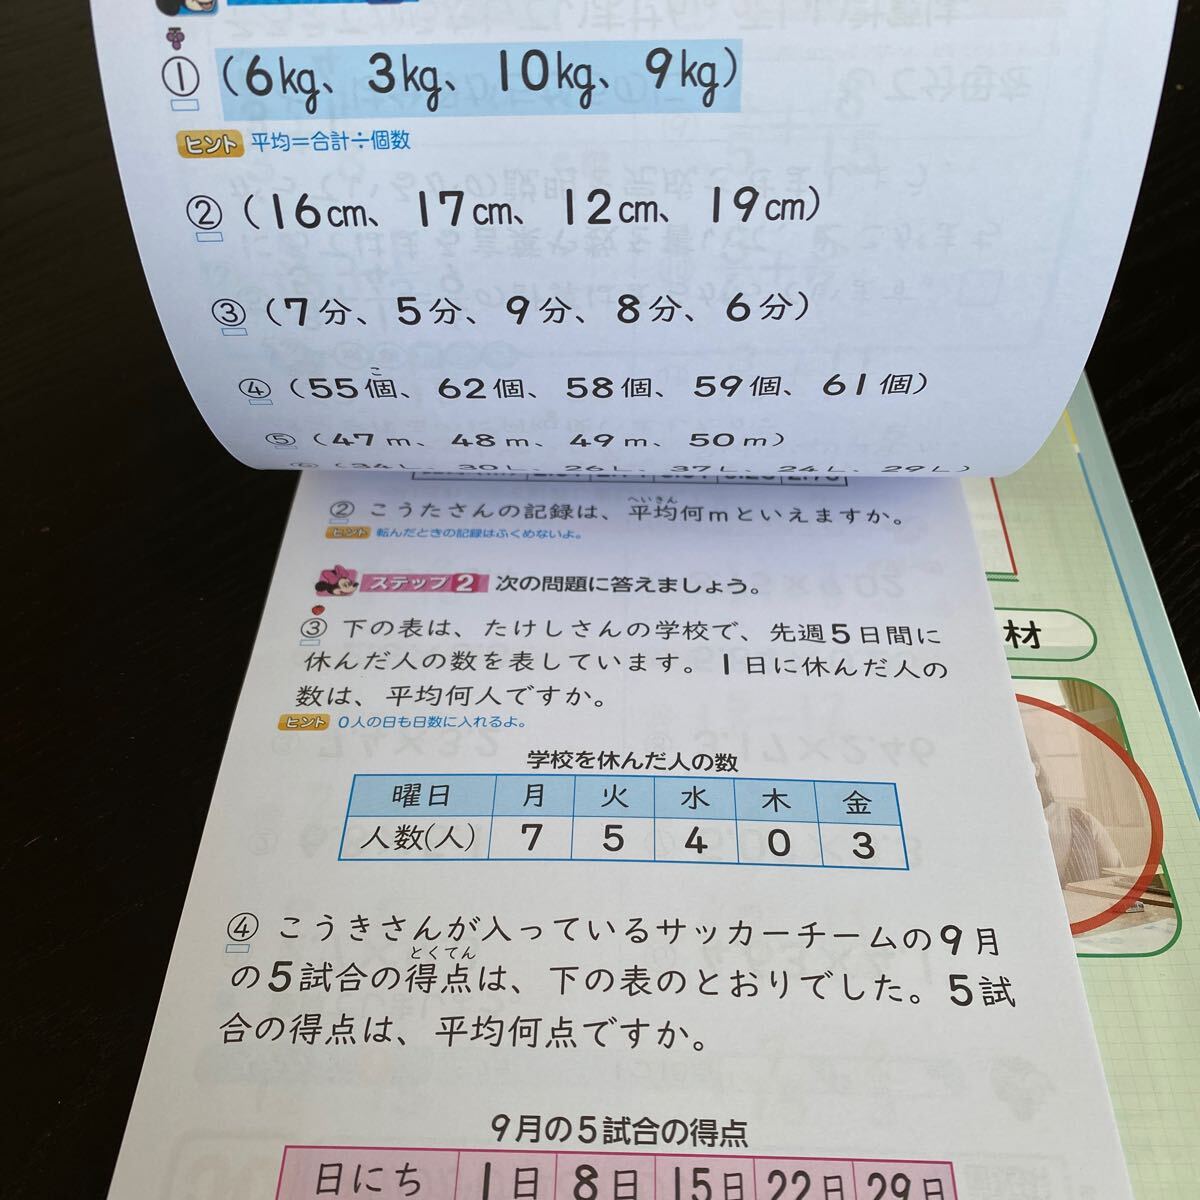 ① (6kg、3kg、10kg、9kg)
ヒント 平均＝合計÷個数
② (16cm、17cm、12cm、19cm)
③ (7分、5分、9分、8分、6分)
こ
④ (55個、62個、58個、59個、61個)
⑤ (47m、48m、49m、50m)
へいきん
② こうたさんの記録は、平均何mといえますか。
ヒント 転んだときの記録はふくめないよ。
ステップ2 次の問題に答えましょう。
③ 下の表は、たけしさんの学校で、先週5日間に
休んだ人の数を表しています。1日に休んだ人の
数は、平均何人ですか。
ヒント 0人の日も日数に入れるよ。
学校を休んだ人の数
曜日 月 火 水 木 金
人数(人) 7 5 4 0 3
④ こうきさんが入っているサッカーチームの9月
とくてん
の5試合の得点は、下の表のとおりでした。5試
合の得点は、平均何点ですか。
9月の5試合の得点
日にち 1日 8日 15日 22日 29日
材